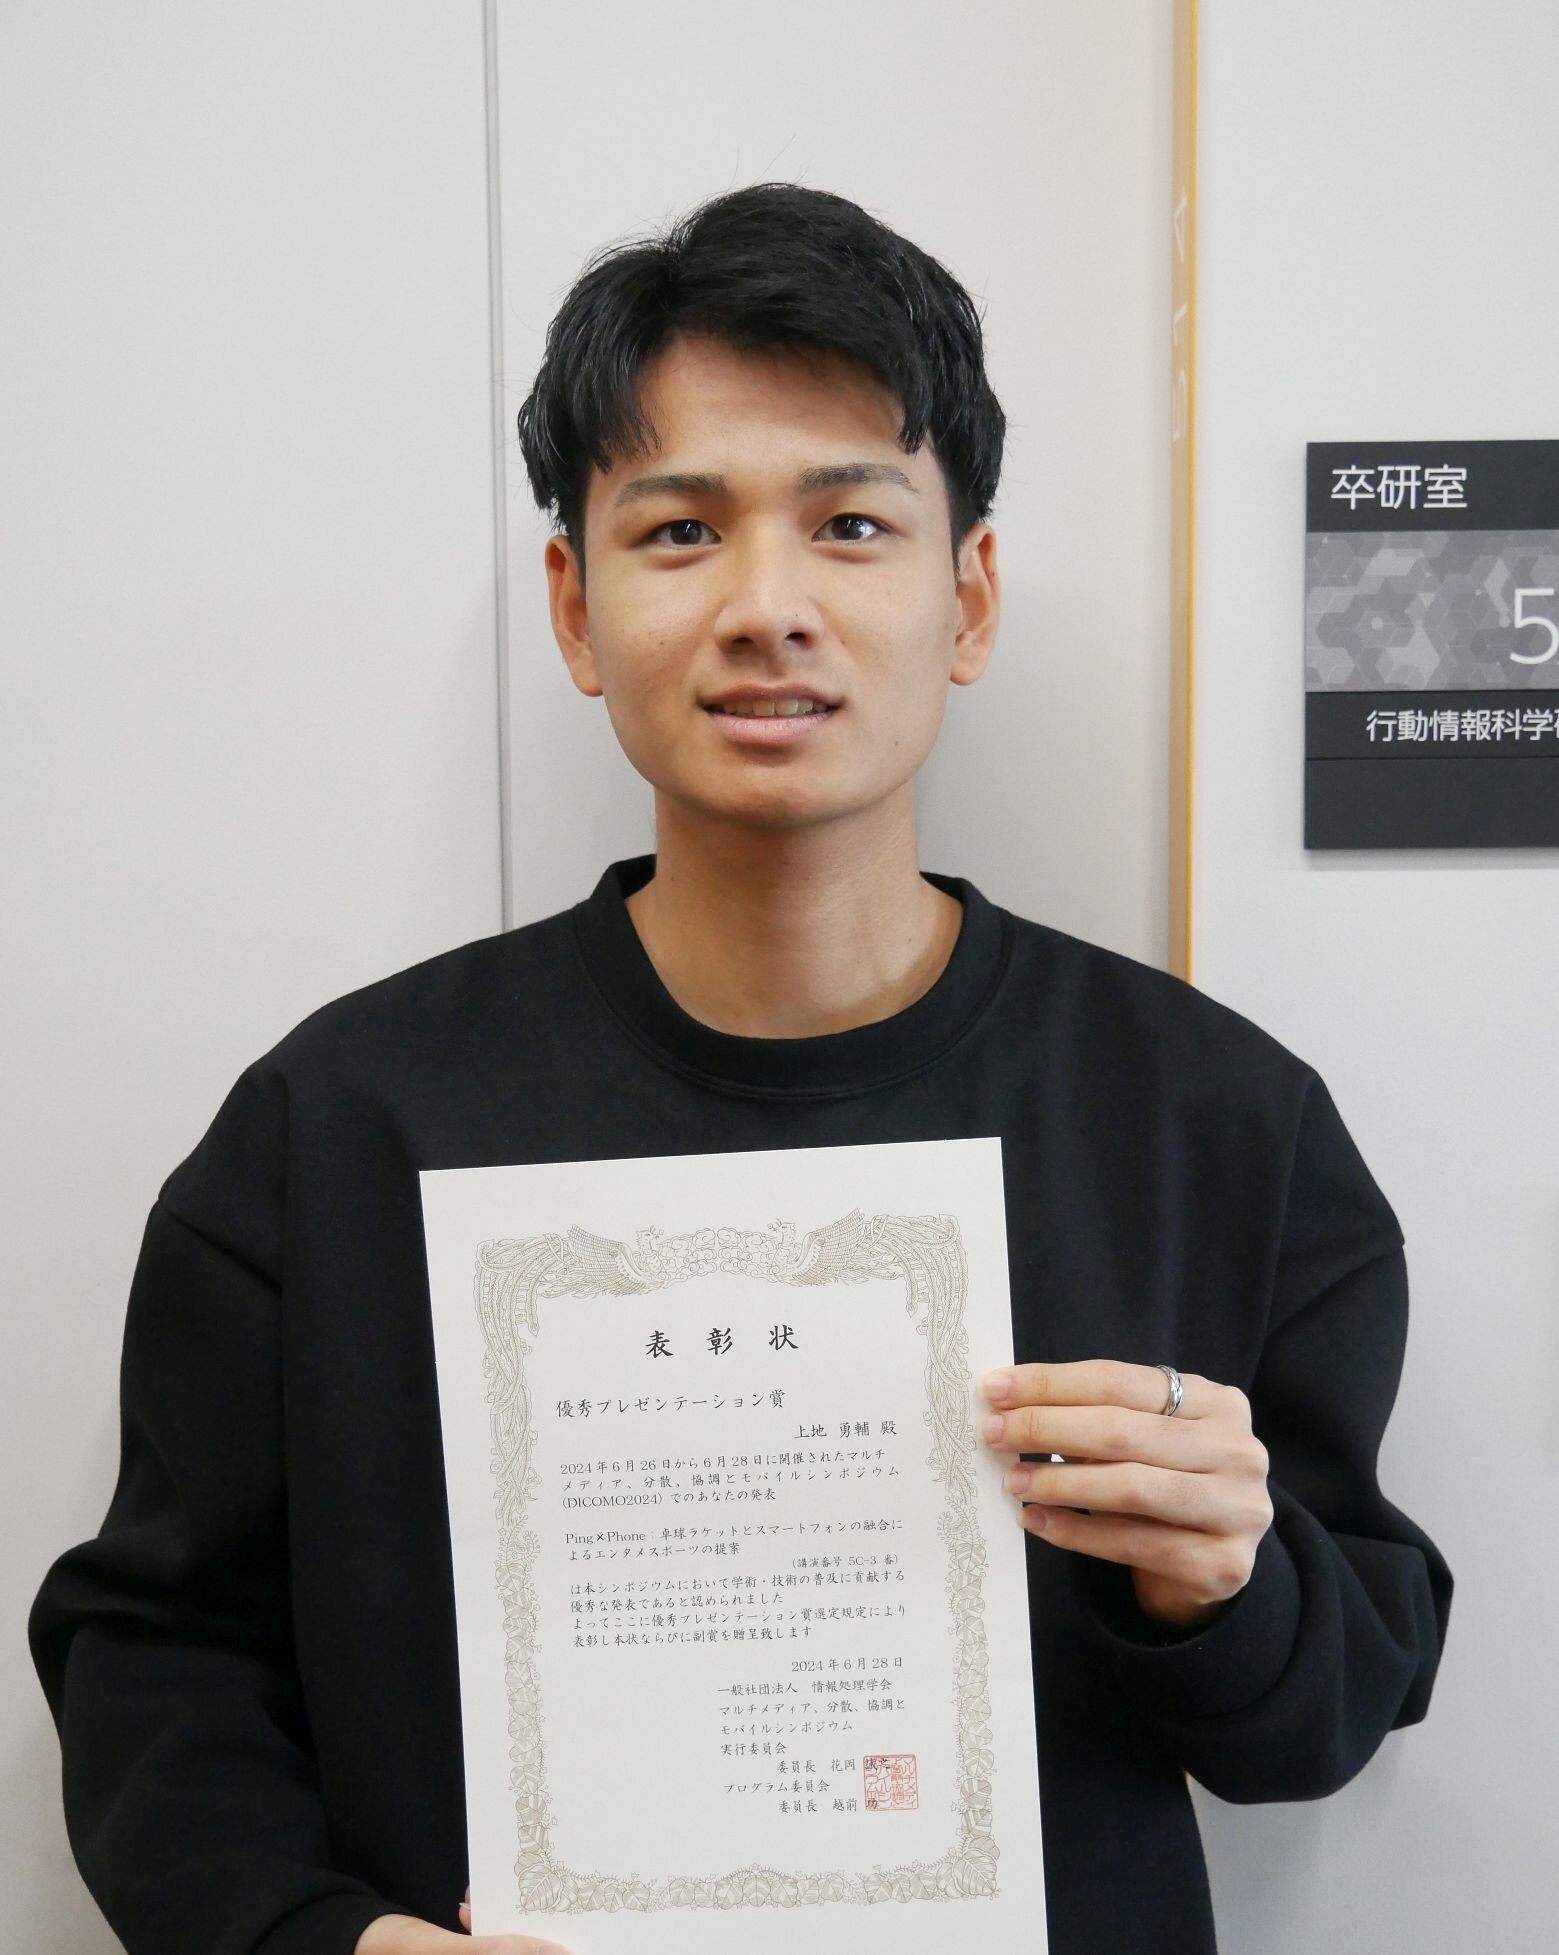 514
卒研室
5
行動情報科学研
表彰状
優秀プレゼンテーション賞
上地 勇輔 殿
2024年6月26日から6月28日に開催されたマルチ
メディア、分散、協調とモバイルシンポジウム
(DICOMO2024) でのあなたの発表
Ping×Phone：卓球ラケットとスマートフォンの融合に
よるエンタメスポーツの提案
（講演番号 5C-3 番）
は本シンポジウムにおいて学術・技術の普及に貢献する
優秀な発表であると認められました
よってここに優秀プレゼンテーション賞選定規定により
表彰し本状ならびに副賞を贈呈致します
2024年6月28日
一般社団法人 情報処理学会
マルチメディア、分散、協調と
モバイルシンポジウム
実行委員会
委員長 花岡 誠之
プログラム委員会
委員長 越前 功